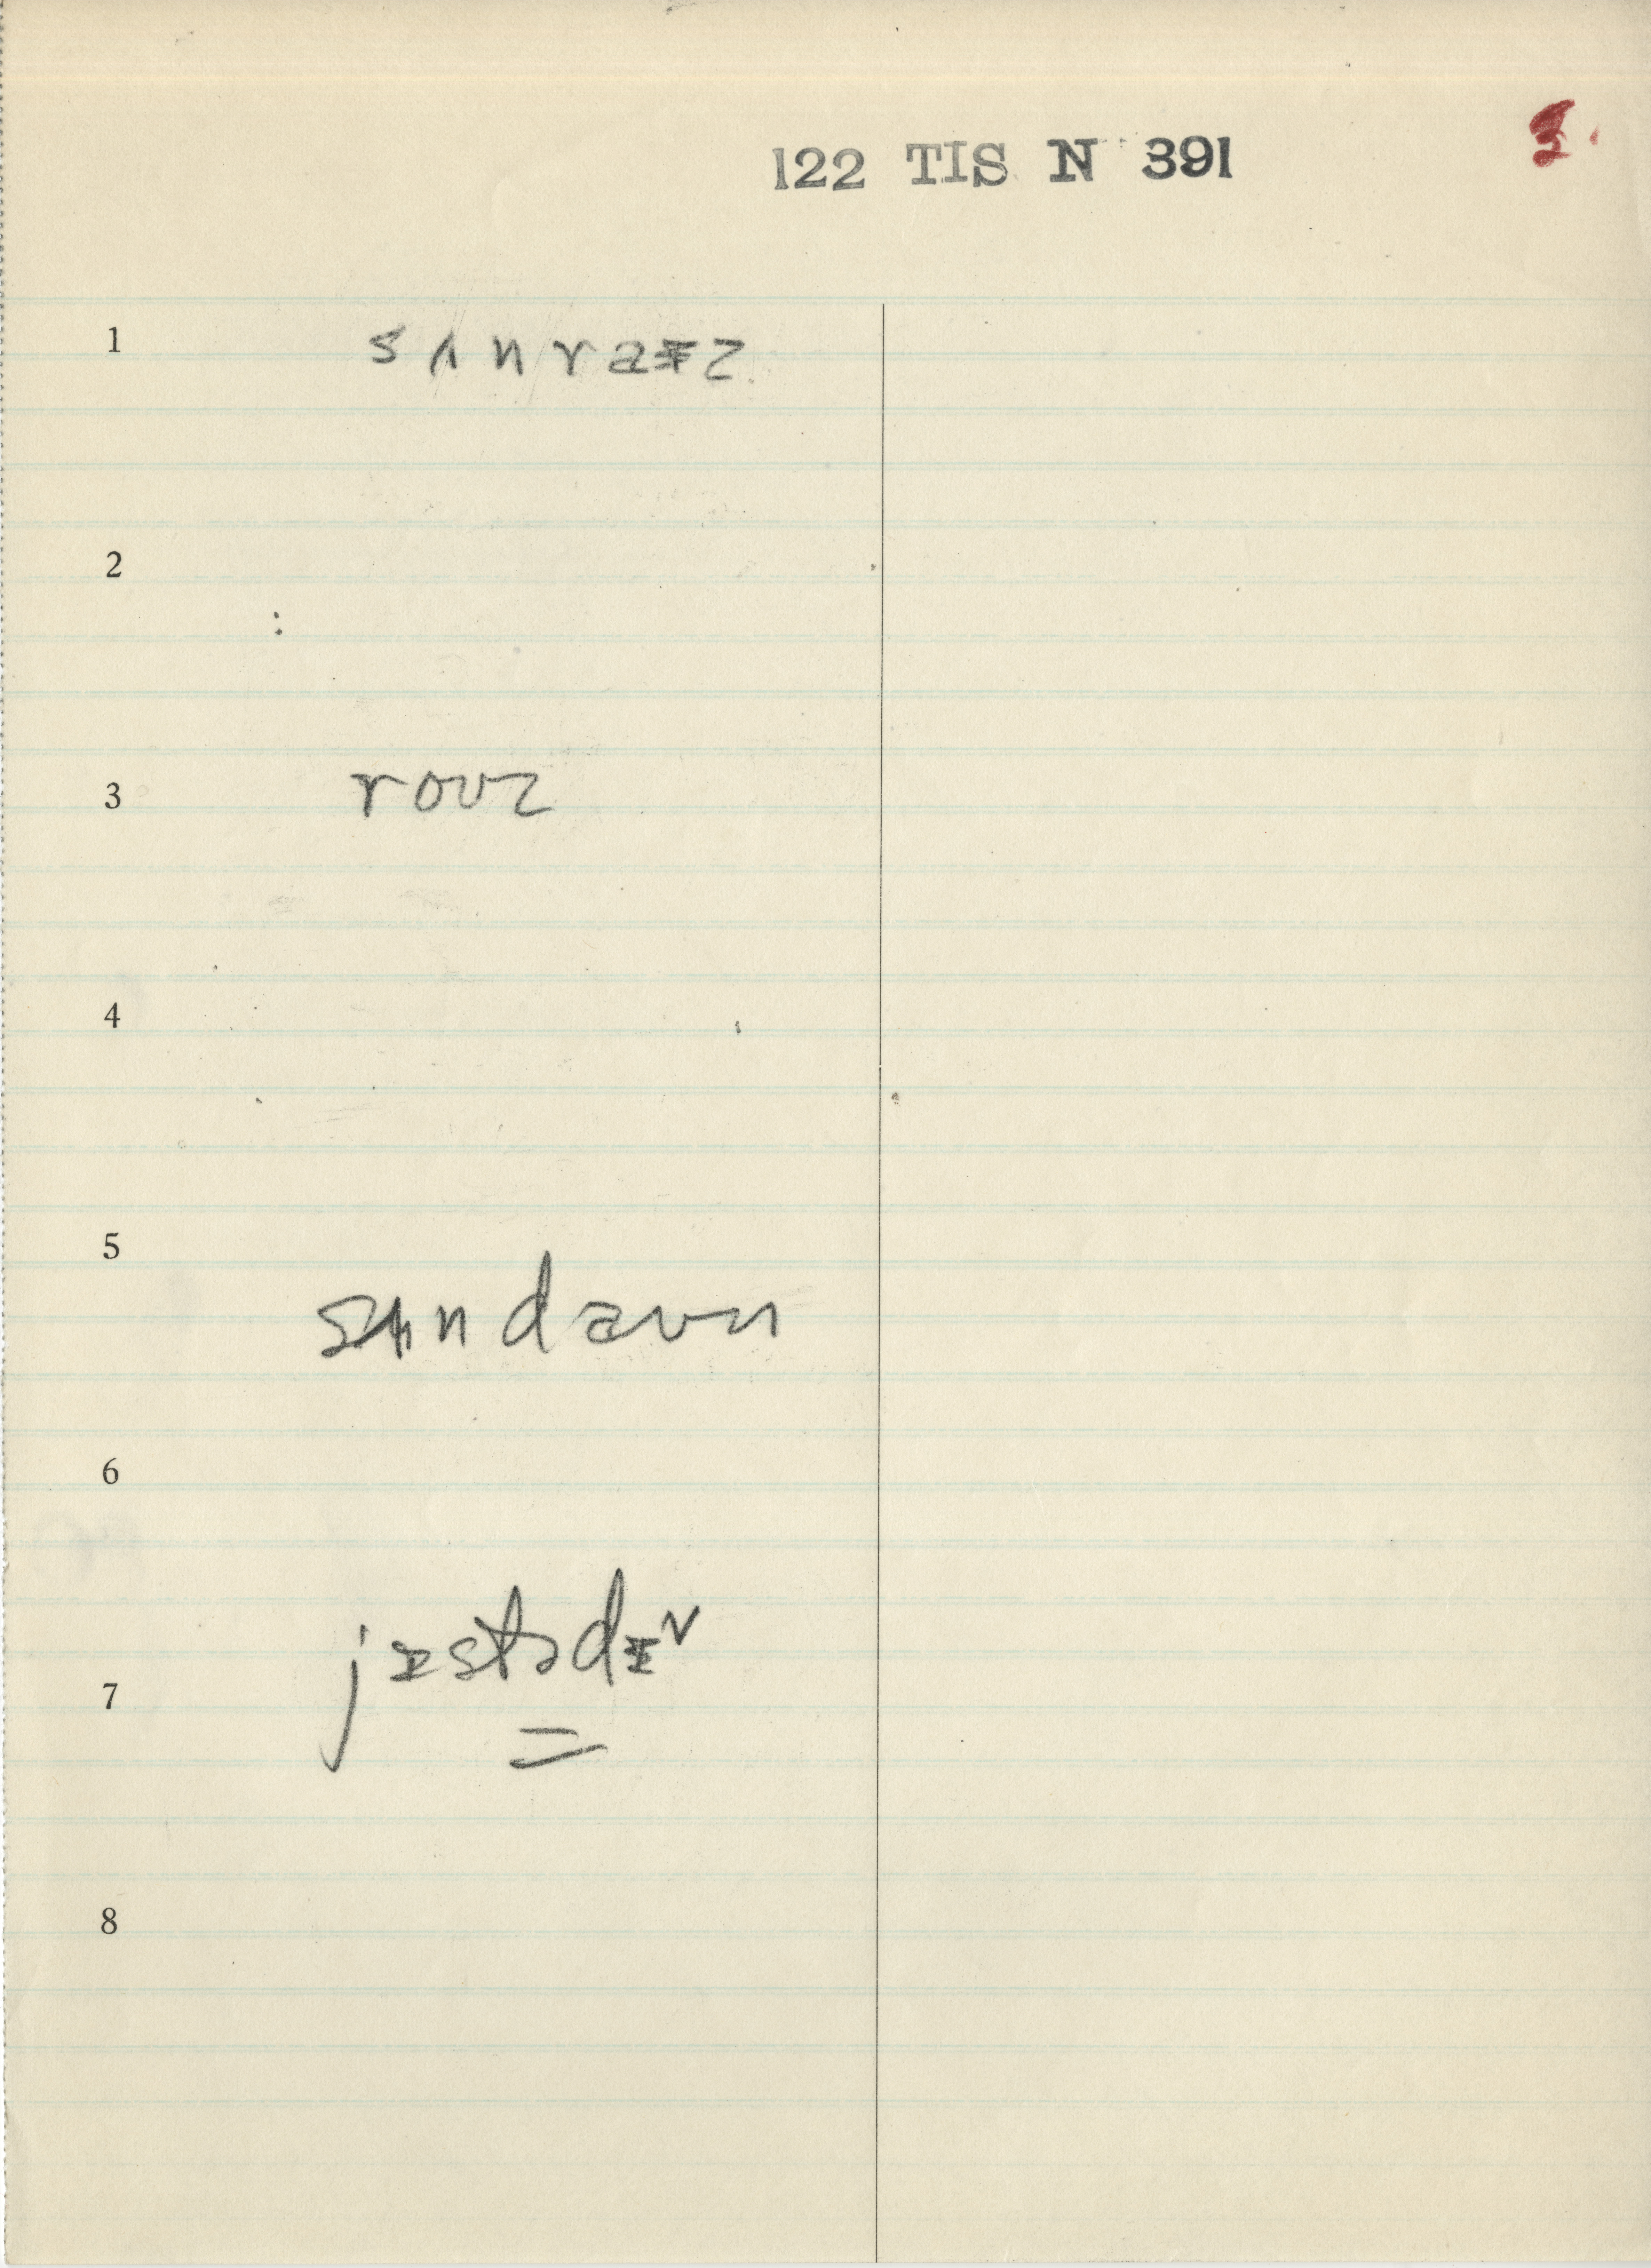 3.
122 TIS N 391
1 sʌnraɪz
2
3 roʊz
4
5 sʌndaʊn
6
jɪstədɪ
7
8